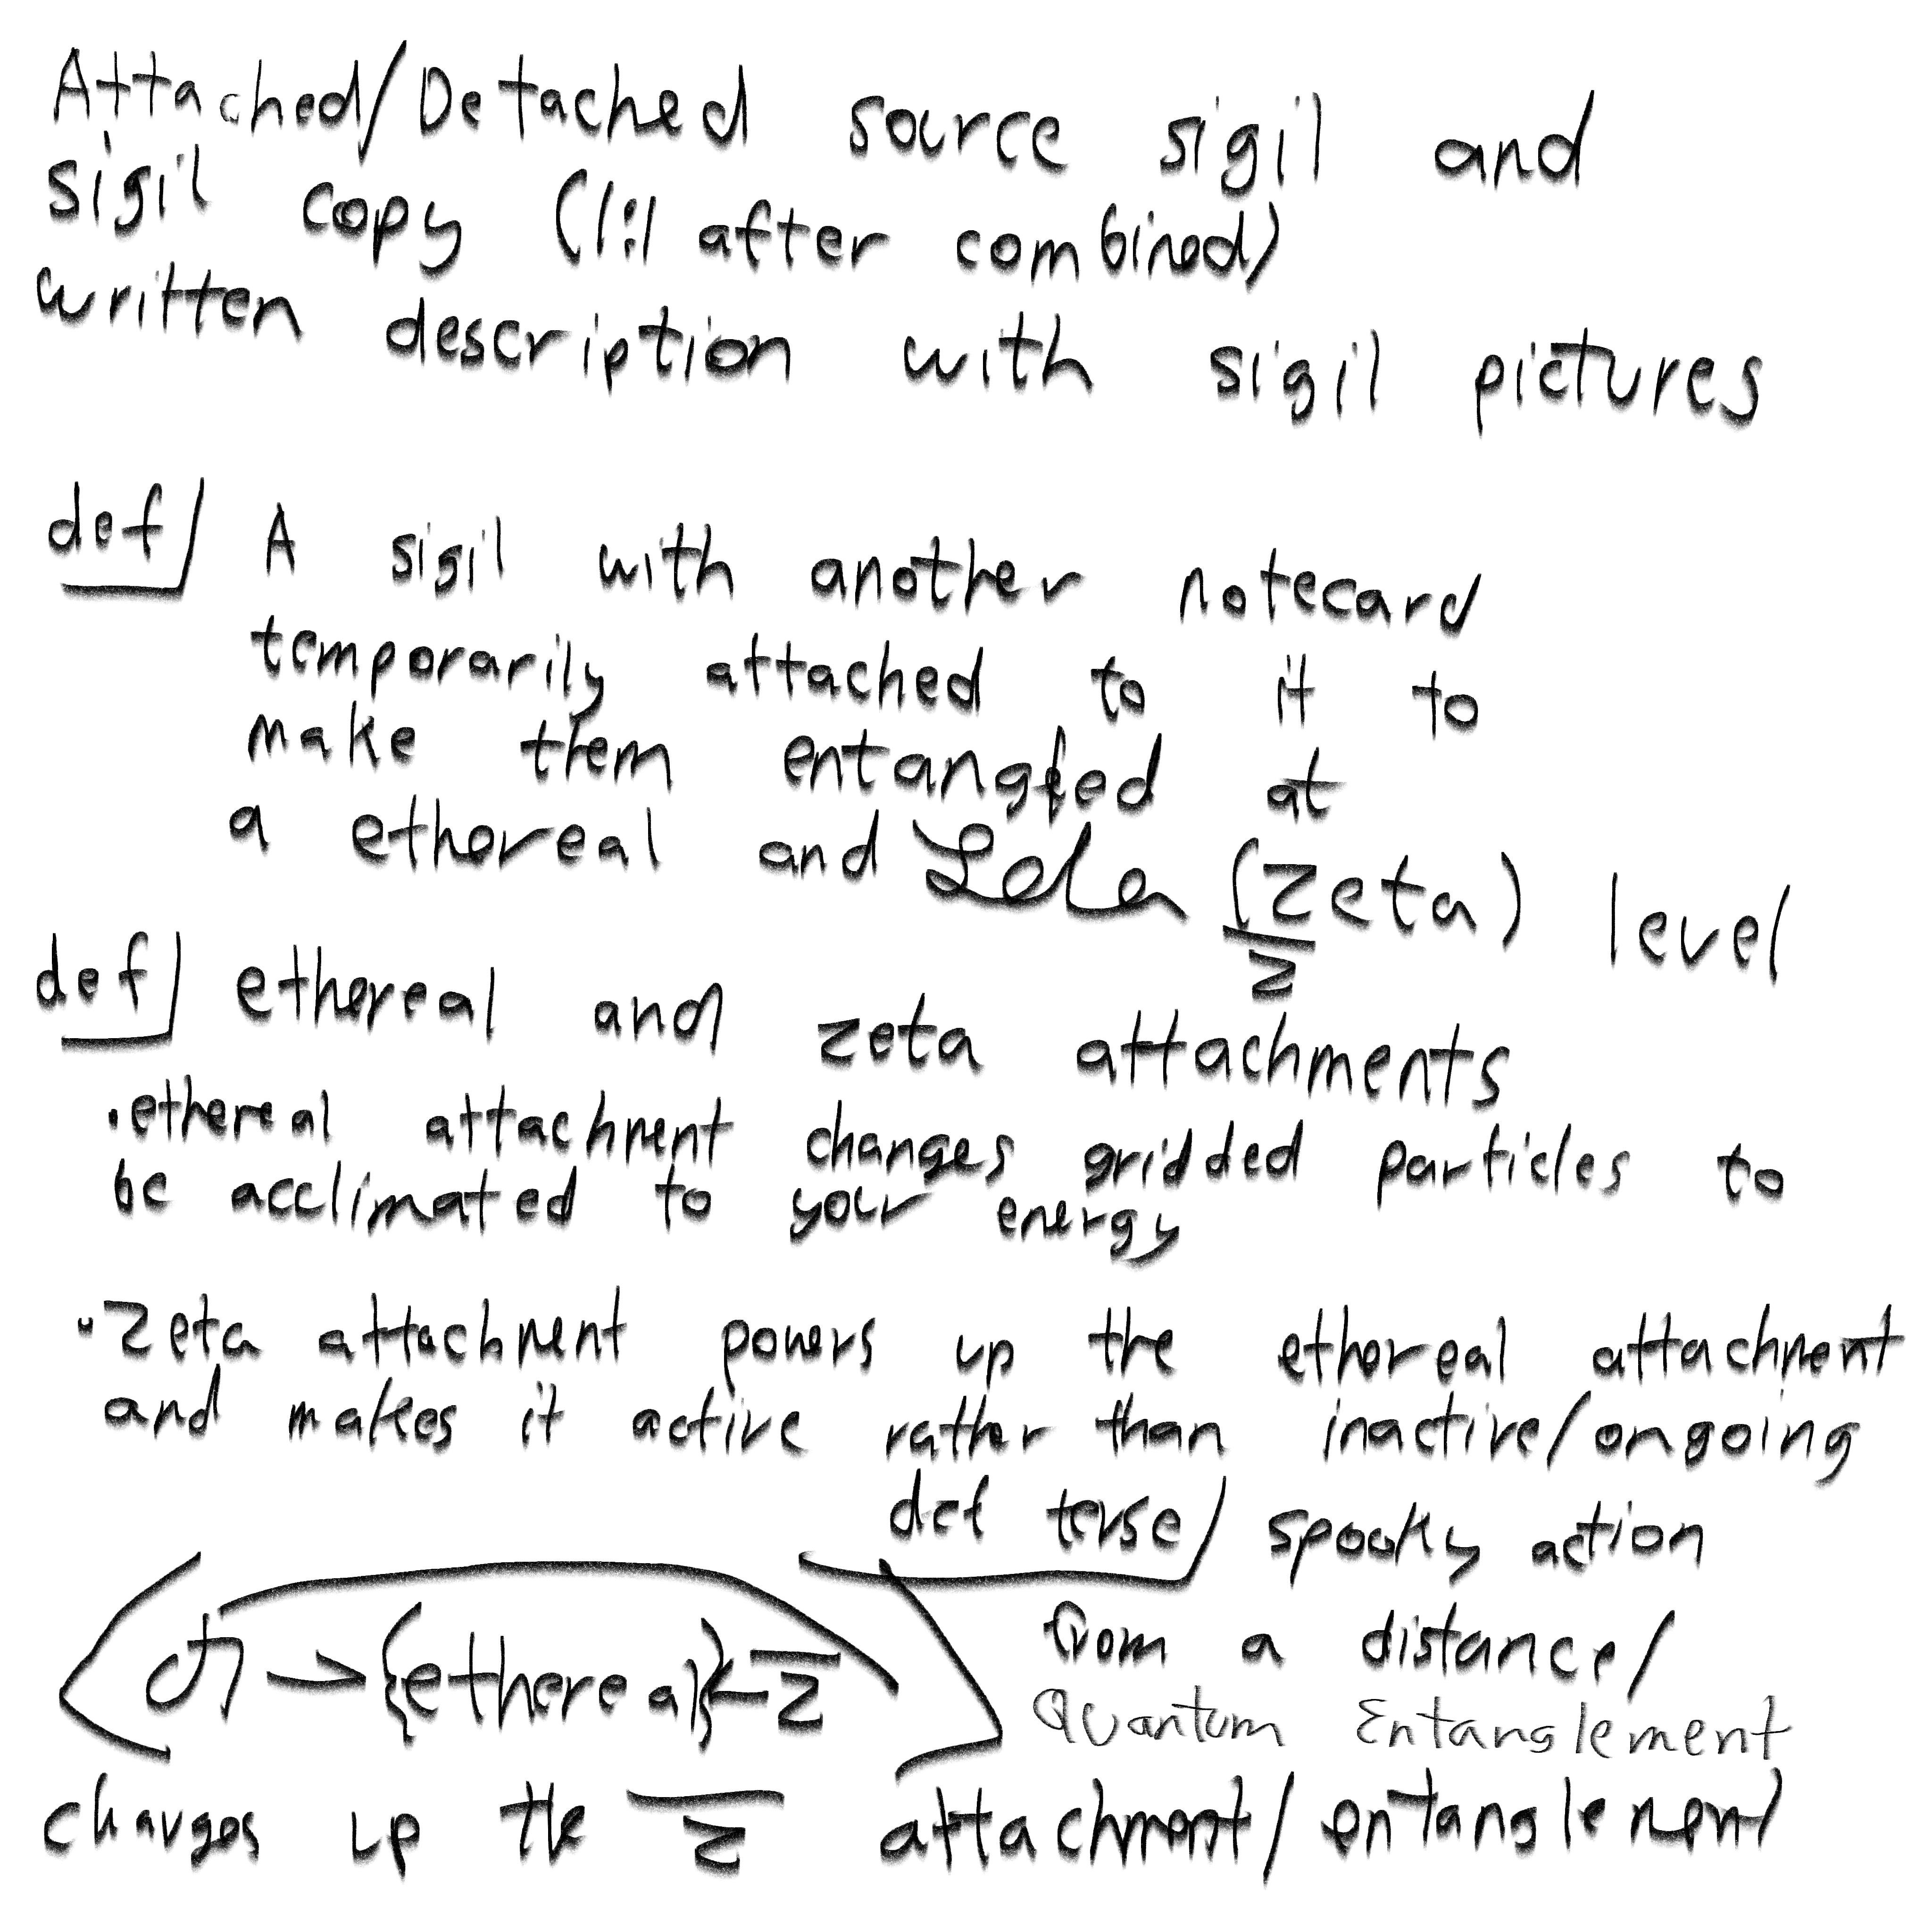 Attached/Detached source sigil and
sigil copy (1:1 after combined)
written description with sigil pictures
def/ A sigil with another notecard
temporarily attached to it to
make them entangled at
a ethereal and (Zeta) level
Z
def/ ethereal and zeta attachments
•ethereal attachment changes gridded particles to
be acclimated to your energy
•Zeta attachment powers up the ethereal attachment
and makes it active rather than inactive/ongoing
def terse/ spooky action
from a distance/
Quantum Entanglement
→{ethereal}←Z
charges up the Z attachment/entanglement